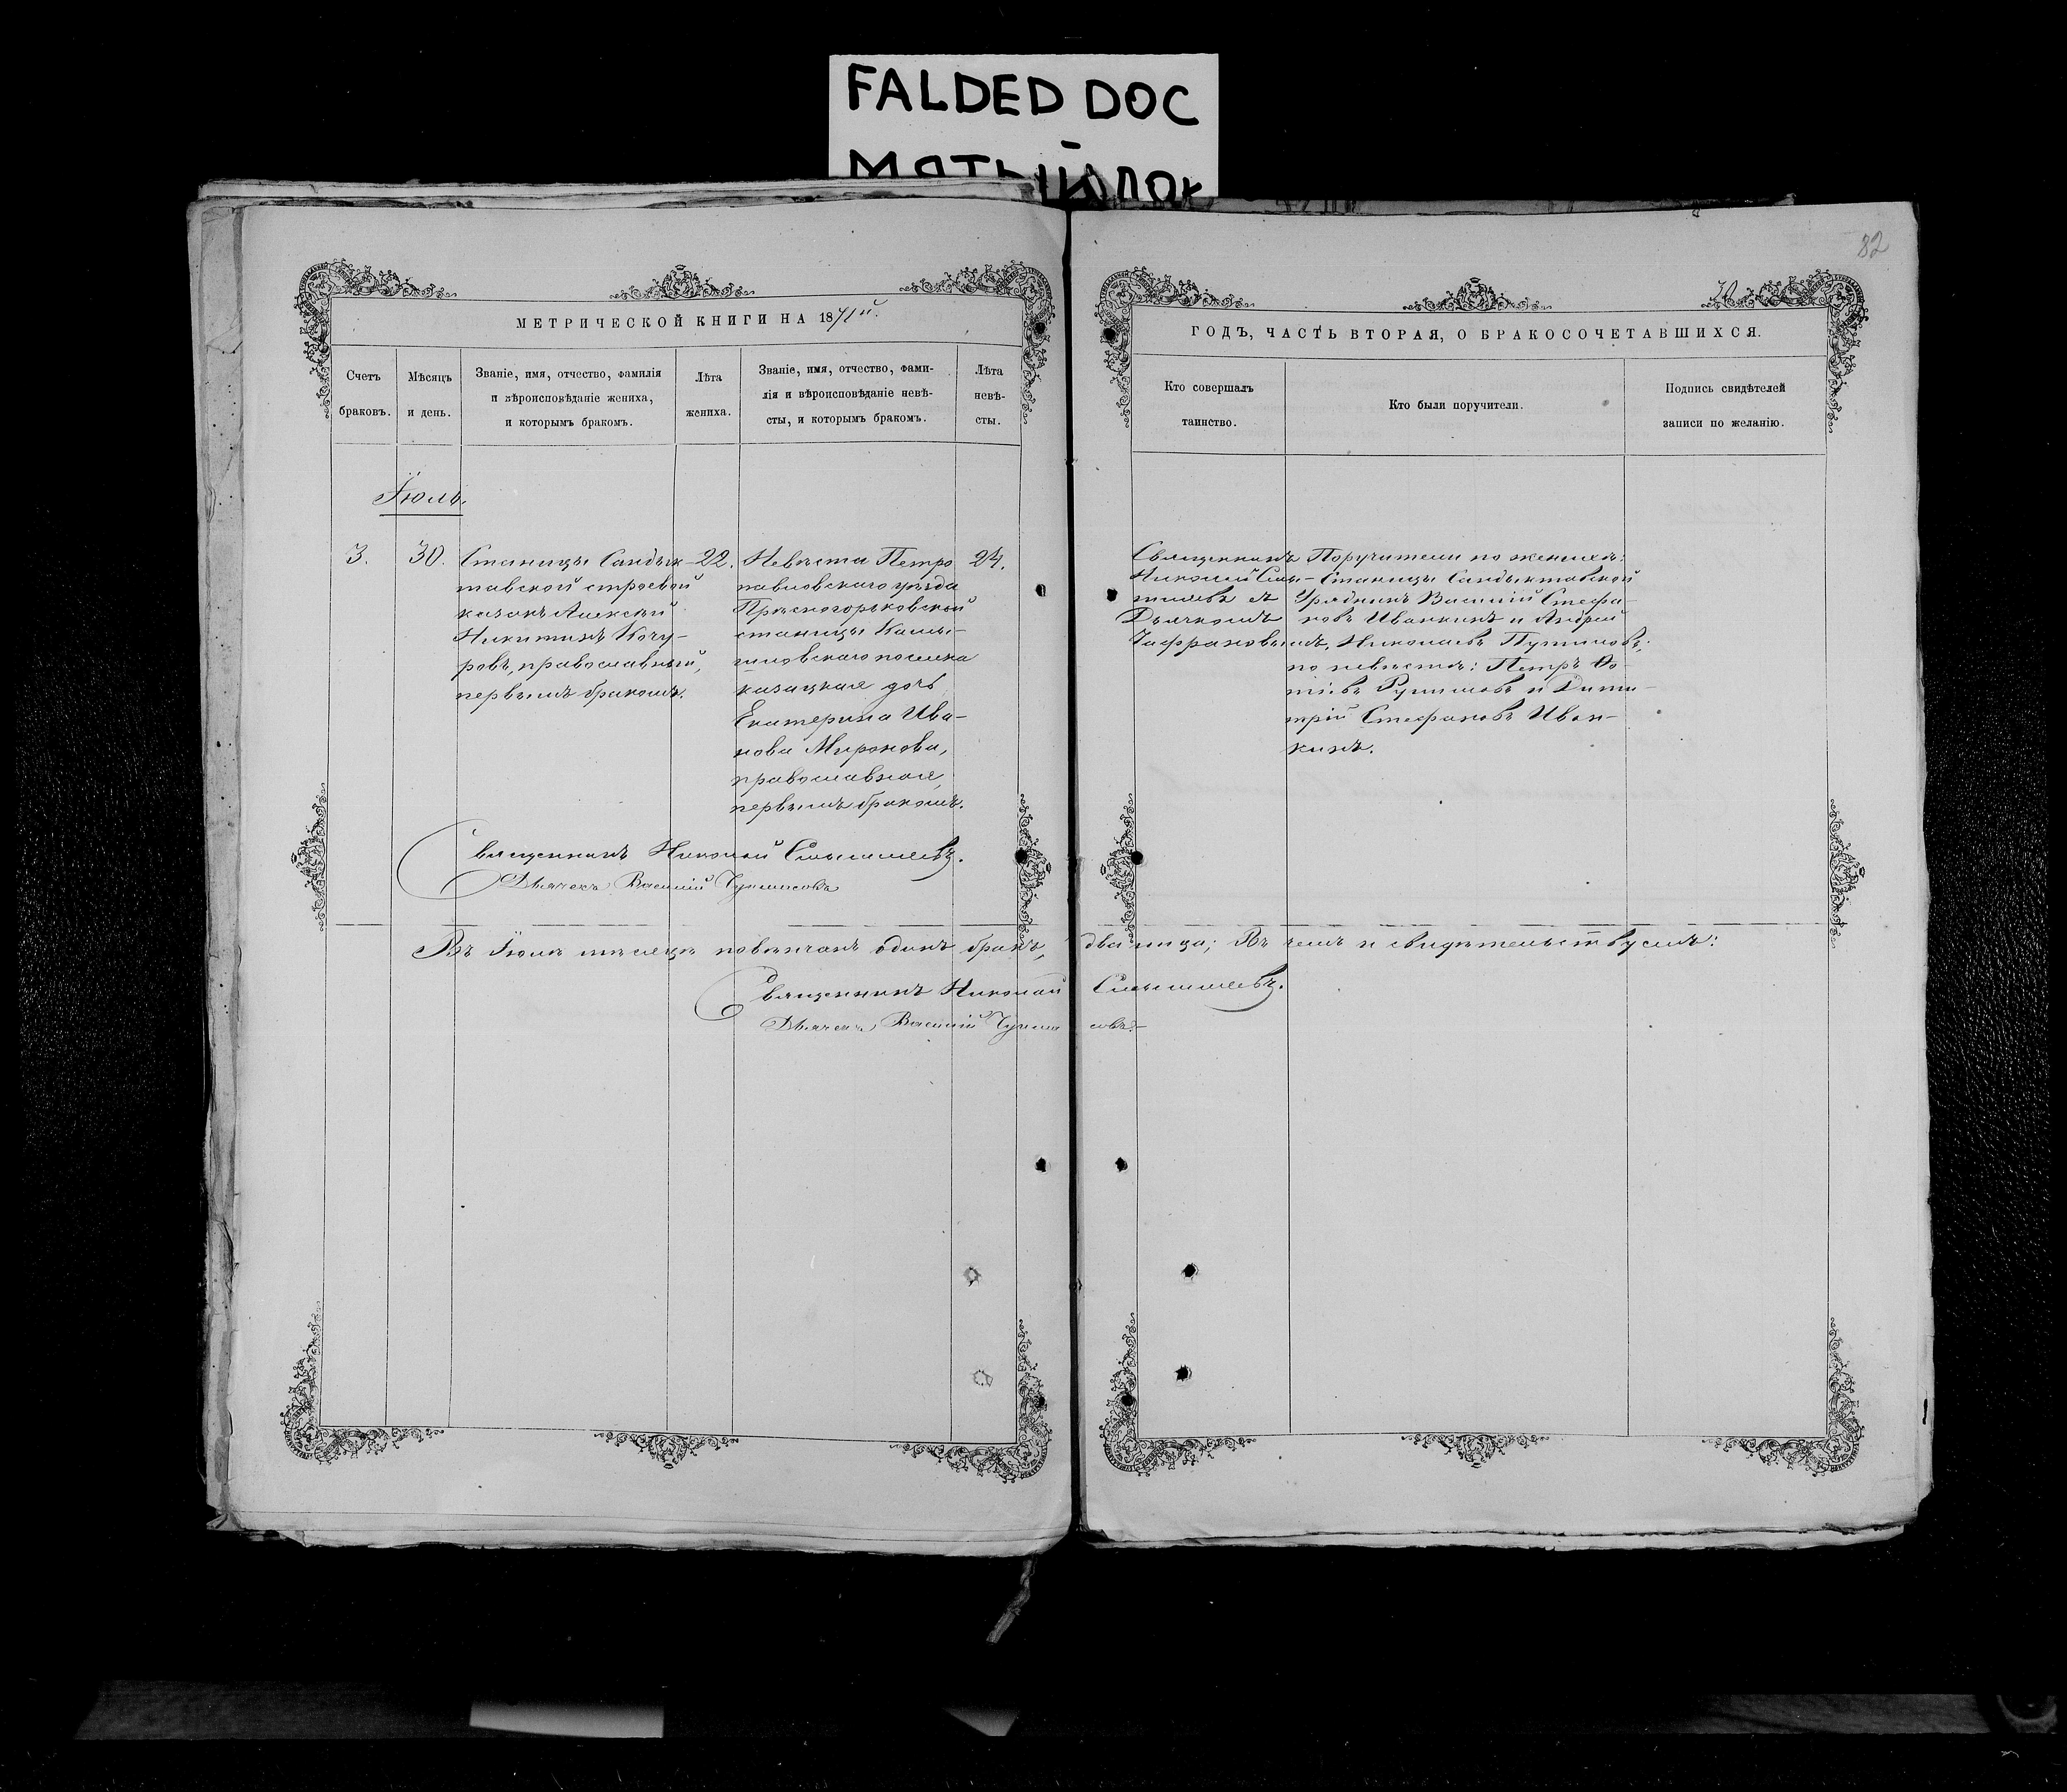 FALDED DOC
МЯТЫЙ ДОК
82
30
МЕТРИЧЕСКОЙ КНИГИ НА 1871й.
ГОДЪ, ЧАСТЬ ВТОРАЯ, О БРАКОСОЧЕТАВШИХСЯ.
Счетъ
браковъ.
Мѣсяцъ
и день.
Званіе, имя, отчество, фамилія
и вѣроисповѣданіе жениха,
и которымъ бракомъ.
Лѣта
жениха.
Званіе, имя, отчество, фами-
лія и вѣроисповѣданіе невѣ-
сты, и которымъ бракомъ.
Лѣта
невѣ-
сты.
Кто совершалъ
таинство.
Кто были поручители.
Подпись свидѣтелей
записи по желанію.
Іюль.
3.
30.
Станицы Сандык-
тавской строевой
казакъ Алексѣй
Никитинъ Кочу-
ровъ, православный,
первымъ бракомъ.
22.
Невѣста Петро
павловскаго уѣзда
Прѣсногорьковской
станицы Камы-
шловскаго поселка
казацкая дочь
Екатерина Ива-
нова Миронова,
православная,
первымъ бракомъ.
24.
Священникъ
Николай Смы-
шляевъ съ
Дьячкомъ
Поручители по женихѣ:
Станицы Сандыктавской
Урядникъ Василій Стефа-
новъ Иванкинъ и Андрей
Николаевъ
по невѣстѣ: Петръ
и Дими-
трій Стефановъ Иван-
кинъ.
Священникъ Николай Смышляевъ.
Дьячекъ Василій
Въ Іюлѣ мѣсяцѣ повѣнчанъ одинъ бракъ, два лица; Въ чемъ и свидѣтельствуемъ:
Священникъ Николай Смышляевъ.
Дьячекъ Василій